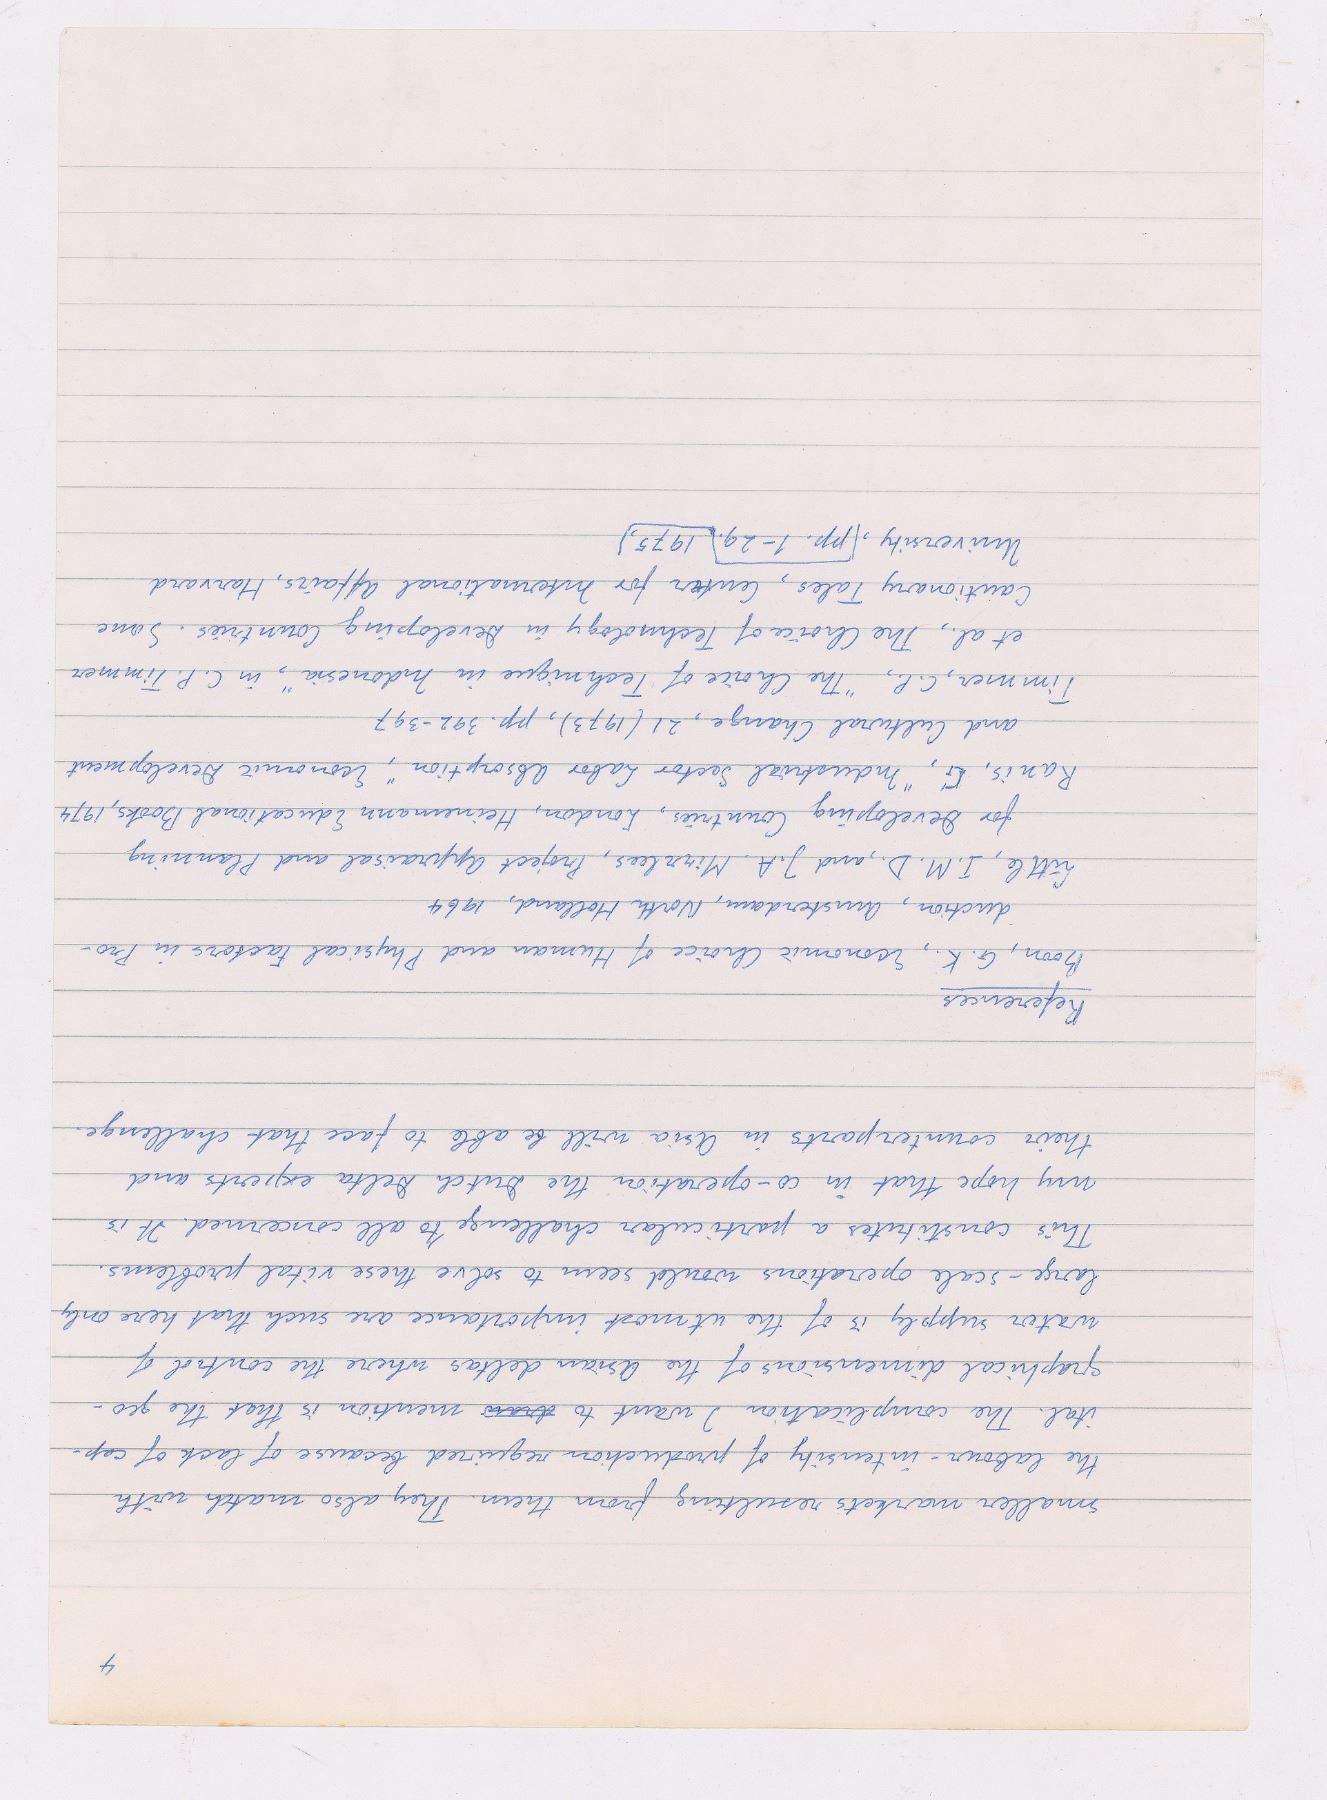 4
smaller markets resulting from them. They also match with
the labour-intensity of production required because of lack of cap-
ital. The complication I want to mention is that the geo-
graphical dimensions of the Asian deltas where the control of
water supply is of the utmost importance are such that here only
large-scale operations would seem to solve these vital problems.
This constitutes a particular challenge to all concerned. It is
my hope that in co-operation the Dutch Delta experts and
their counterparts in Asia will be able to face that challenge.
References
Boon, G.K., Economic Choice of Human and Physical Factors in Pro-
duction, Amsterdam, North Holland, 1964
Little, I.M.D., and J.A. Mirrlees, Project Appraisal and Planning
for Developing Countries, London, Heinemann Educational Books, 1974
Ranis, G., "Industrial Sector Labor Absorption", Economic Development
and Cultural Change, 21 (1973), pp. 392-397
Timmer, C.P., "The Choice of Technique in Indonesia," in C.P. Timmer
et al., The Choice of Technology in Developing Countries. Some
Cautionary Tales, Center for International Affairs, Harvard
University, pp. 1-29. 1975,